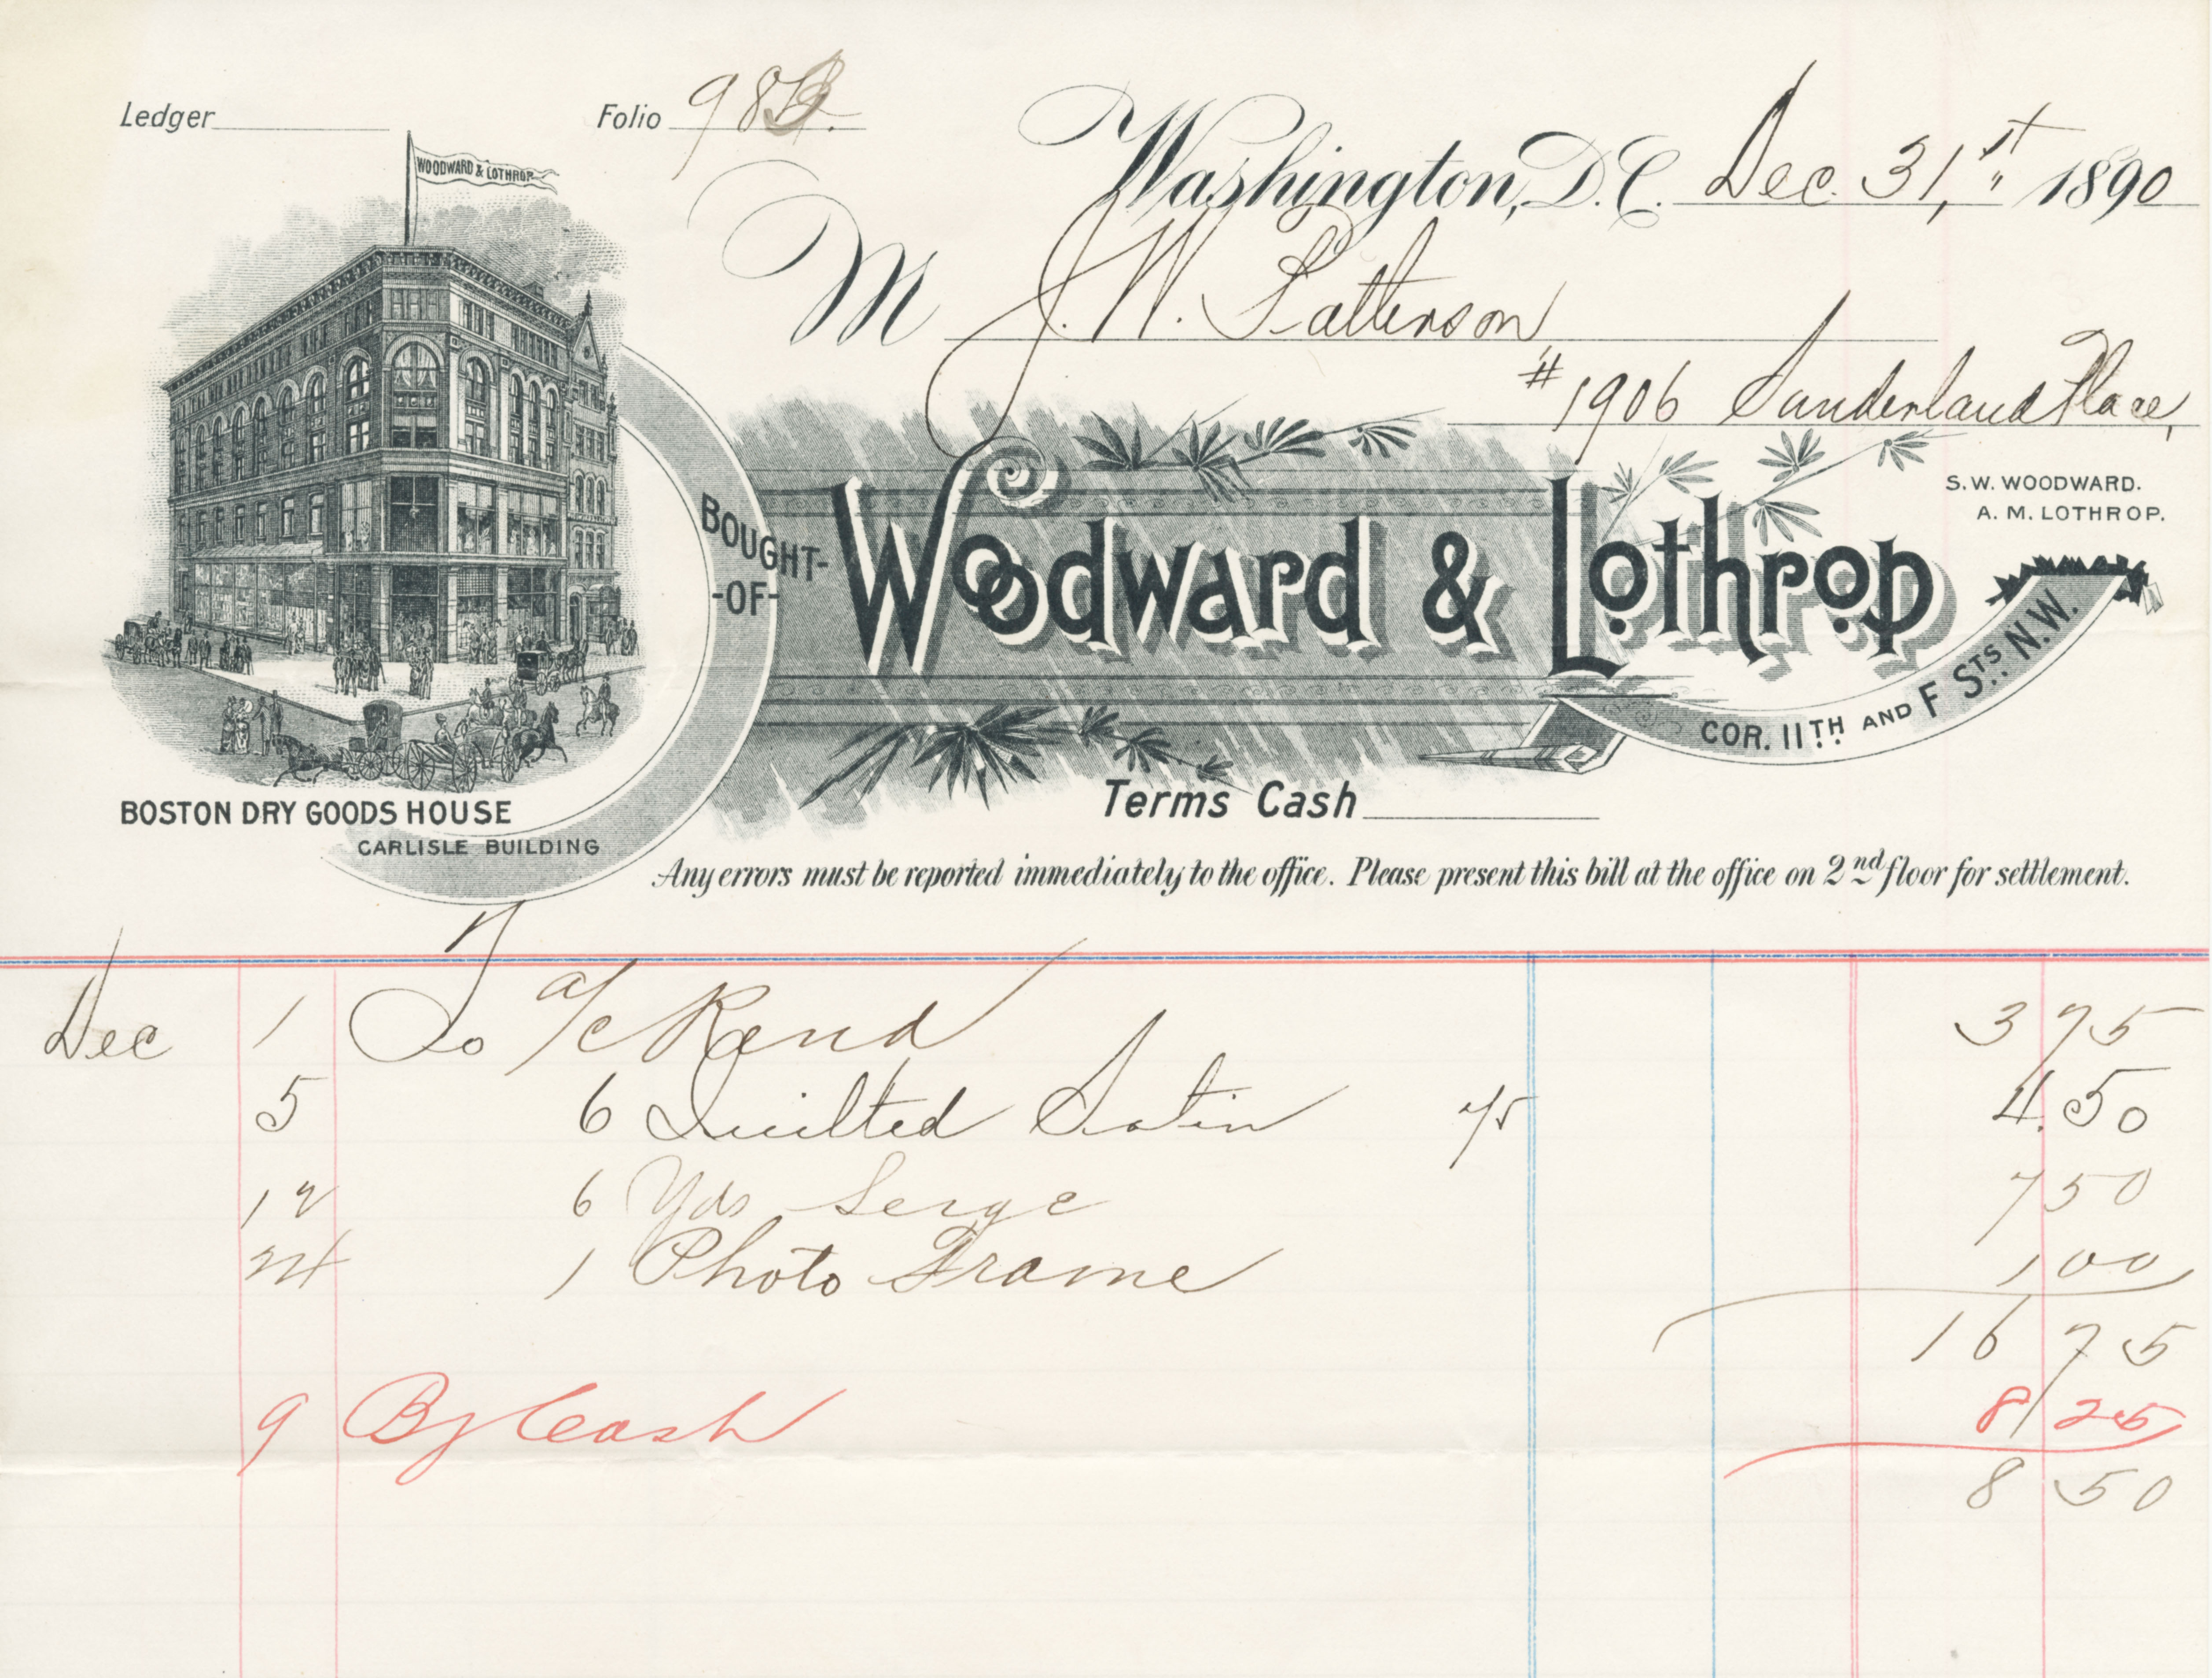 Ledger
Folio 98B.
WOODWARD & LOTHROP
Washington, D.C. Dec. 31,st 1890
M J. W. Patterson
#1906 Sunderland Place,
S. W. WOODWARD.
A. M. LOTHROP.
BOUGHT-
-OF-
Woodward & Lothrop
COR. 11TH AND F STS. N.W.
Terms Cash
BOSTON DRY GOODS HOUSE
CARLISLE BUILDING
Any errors must be reported immediately to the office. Please present this bill at the office on 2nd floor for settlement.
Dec 1 To a/c Rend 3 75
5 6 Quilted Satin 75 4.50
12 6 Yds Serge 7 50
24 1 Photo Frame 1 00
16 75
9 By Cash 8 25
8 50